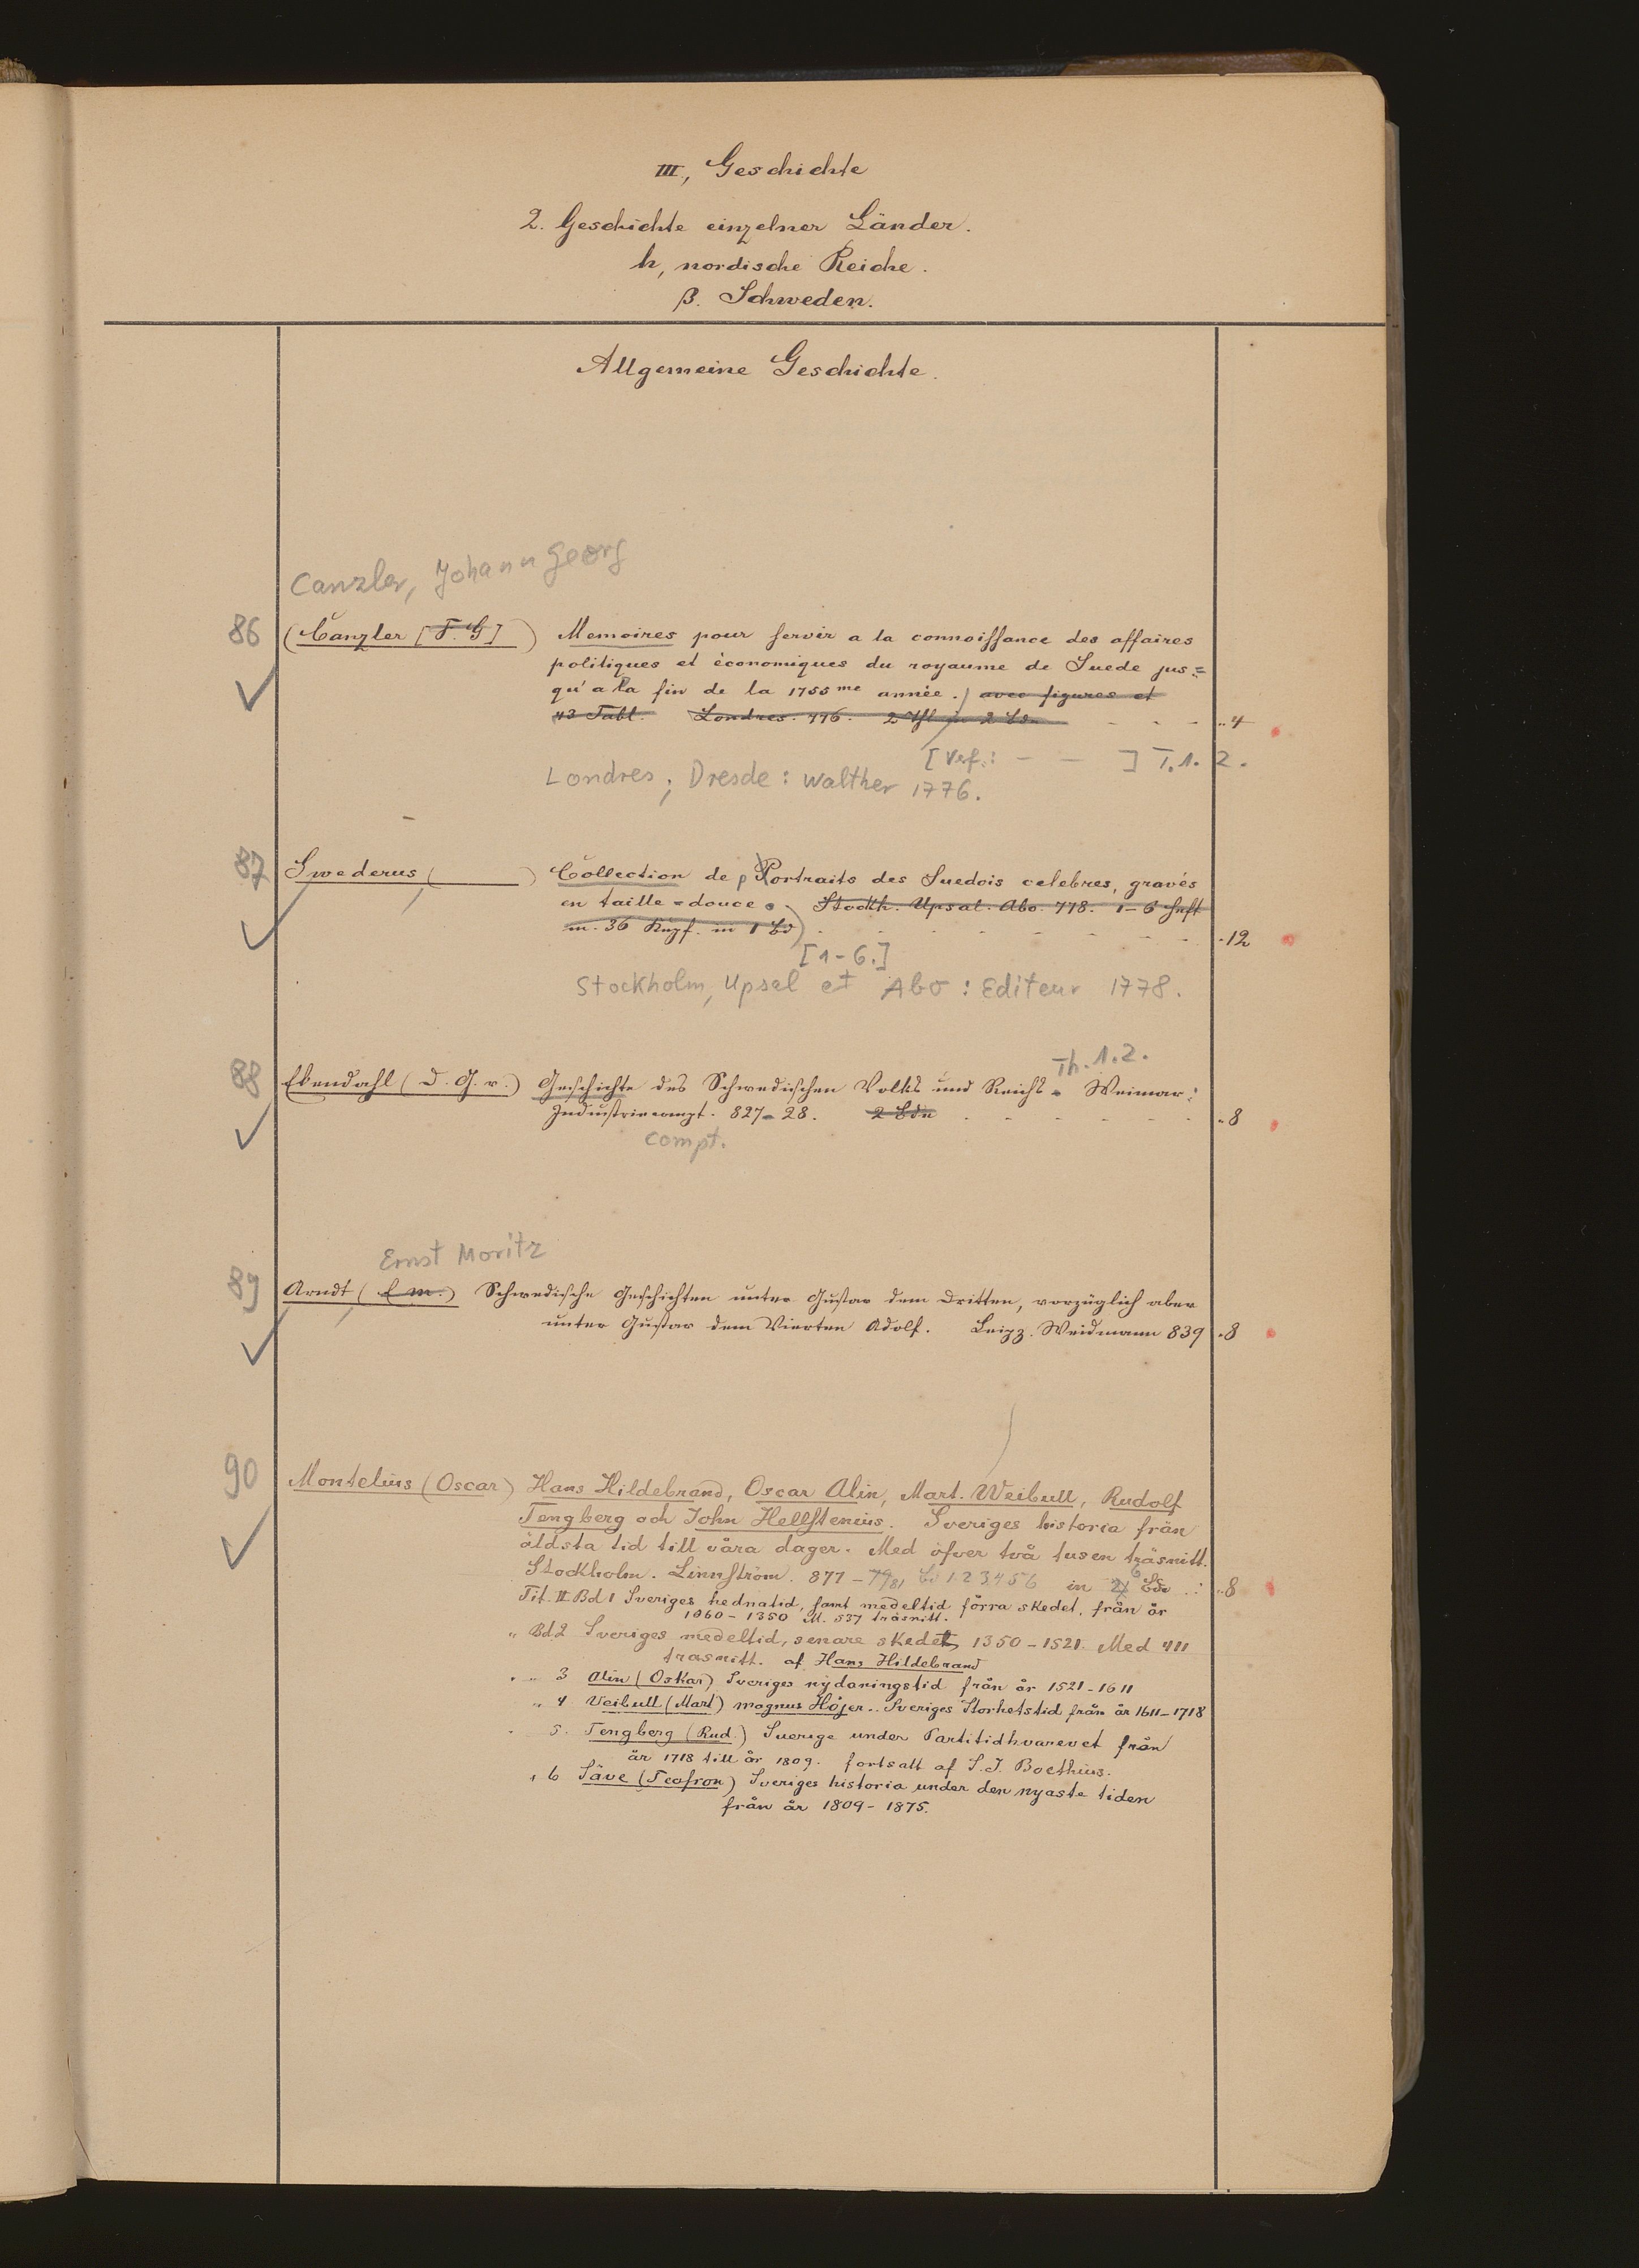 III, Geschichte
2. Geschichte einzelner Länder.
h, nordische Reiche.
β. Schweden.
Allgemeine Geschichte.
Canzler, Johann Georg
86 (Canzler [F. G]) Memoires pour servir a la connoissance des affaires
politiques et économiques du royaume de Suede jus=
qu'a la fin de la 1755me année.) avec figures et
43 Tabl. Londres. 776. 2 Thl in 2 Bdn - - - „4
[Verf.: - - ] T. 1. 2.
Londres; Dresde: Walther 1776.
87 Swederus ( ) Collection de pPortraits des Suedois celebres, gravés
en taille=douce. Stockh. Upsal. Abo. 778. 1-6 Heft
m. 36 Kupf. in 1 Bd) - - - - - - -12
[1-6.]
Stockholm, Upsal et Abo: Editeur 1778.
Th. 1.2.
88 Ekendahl (D. G. v.) Geschichte des Schwedischen Volks und Reichs. Weimar:
Industriecompt. 827-28. 2 Bdn - - - - - „8
Compt.
Ernst Moritz
89 Arndt (E m.) Schwedische Geschichten unter Gustav dem Dritten, vorzüglich aber
unter Gustav dem Vierten Adolf. Leipz. Weidmann 839 „8
90 Montelius (Oscar) Hans Hildebrand, Oscar Alin, Mart. Weibull, Rudolf
Tengberg och John Hellstenius. Sveriges historia från
äldsta tid till våra dager. Med öfver två tusen träsnitt.
Stockholm. Linnström. 877-79/81 Bd 1 2 3 4 5 6 in 6 Bdn .: „8
Tit. II Bd 1 Sveriges hednatid, samt medeltid förra skedet, från år
1060-1350 M. 537 träsnitt.
„ Bd 2 Sveriges medeltid, senare skedet, 1350-1521. Med 411
trasnitt. af Hans Hildebrand
„ „ 3 Alin (Oskar) Sveriges nydaningstid från år 1521-1611
„ 4 Veibull (Mart) magnus Höjer.. Sveriges Storhetstid från år 1611-1718
„ 5. Tengberg (Rud.) Sverige under Partitidhvarevet från
år 1718 till år 1809. fortsatt af S. J. Boethius.
„ 6 Säve (Teofron) Sveriges historia under den nyaste tiden
från år 1809-1875.